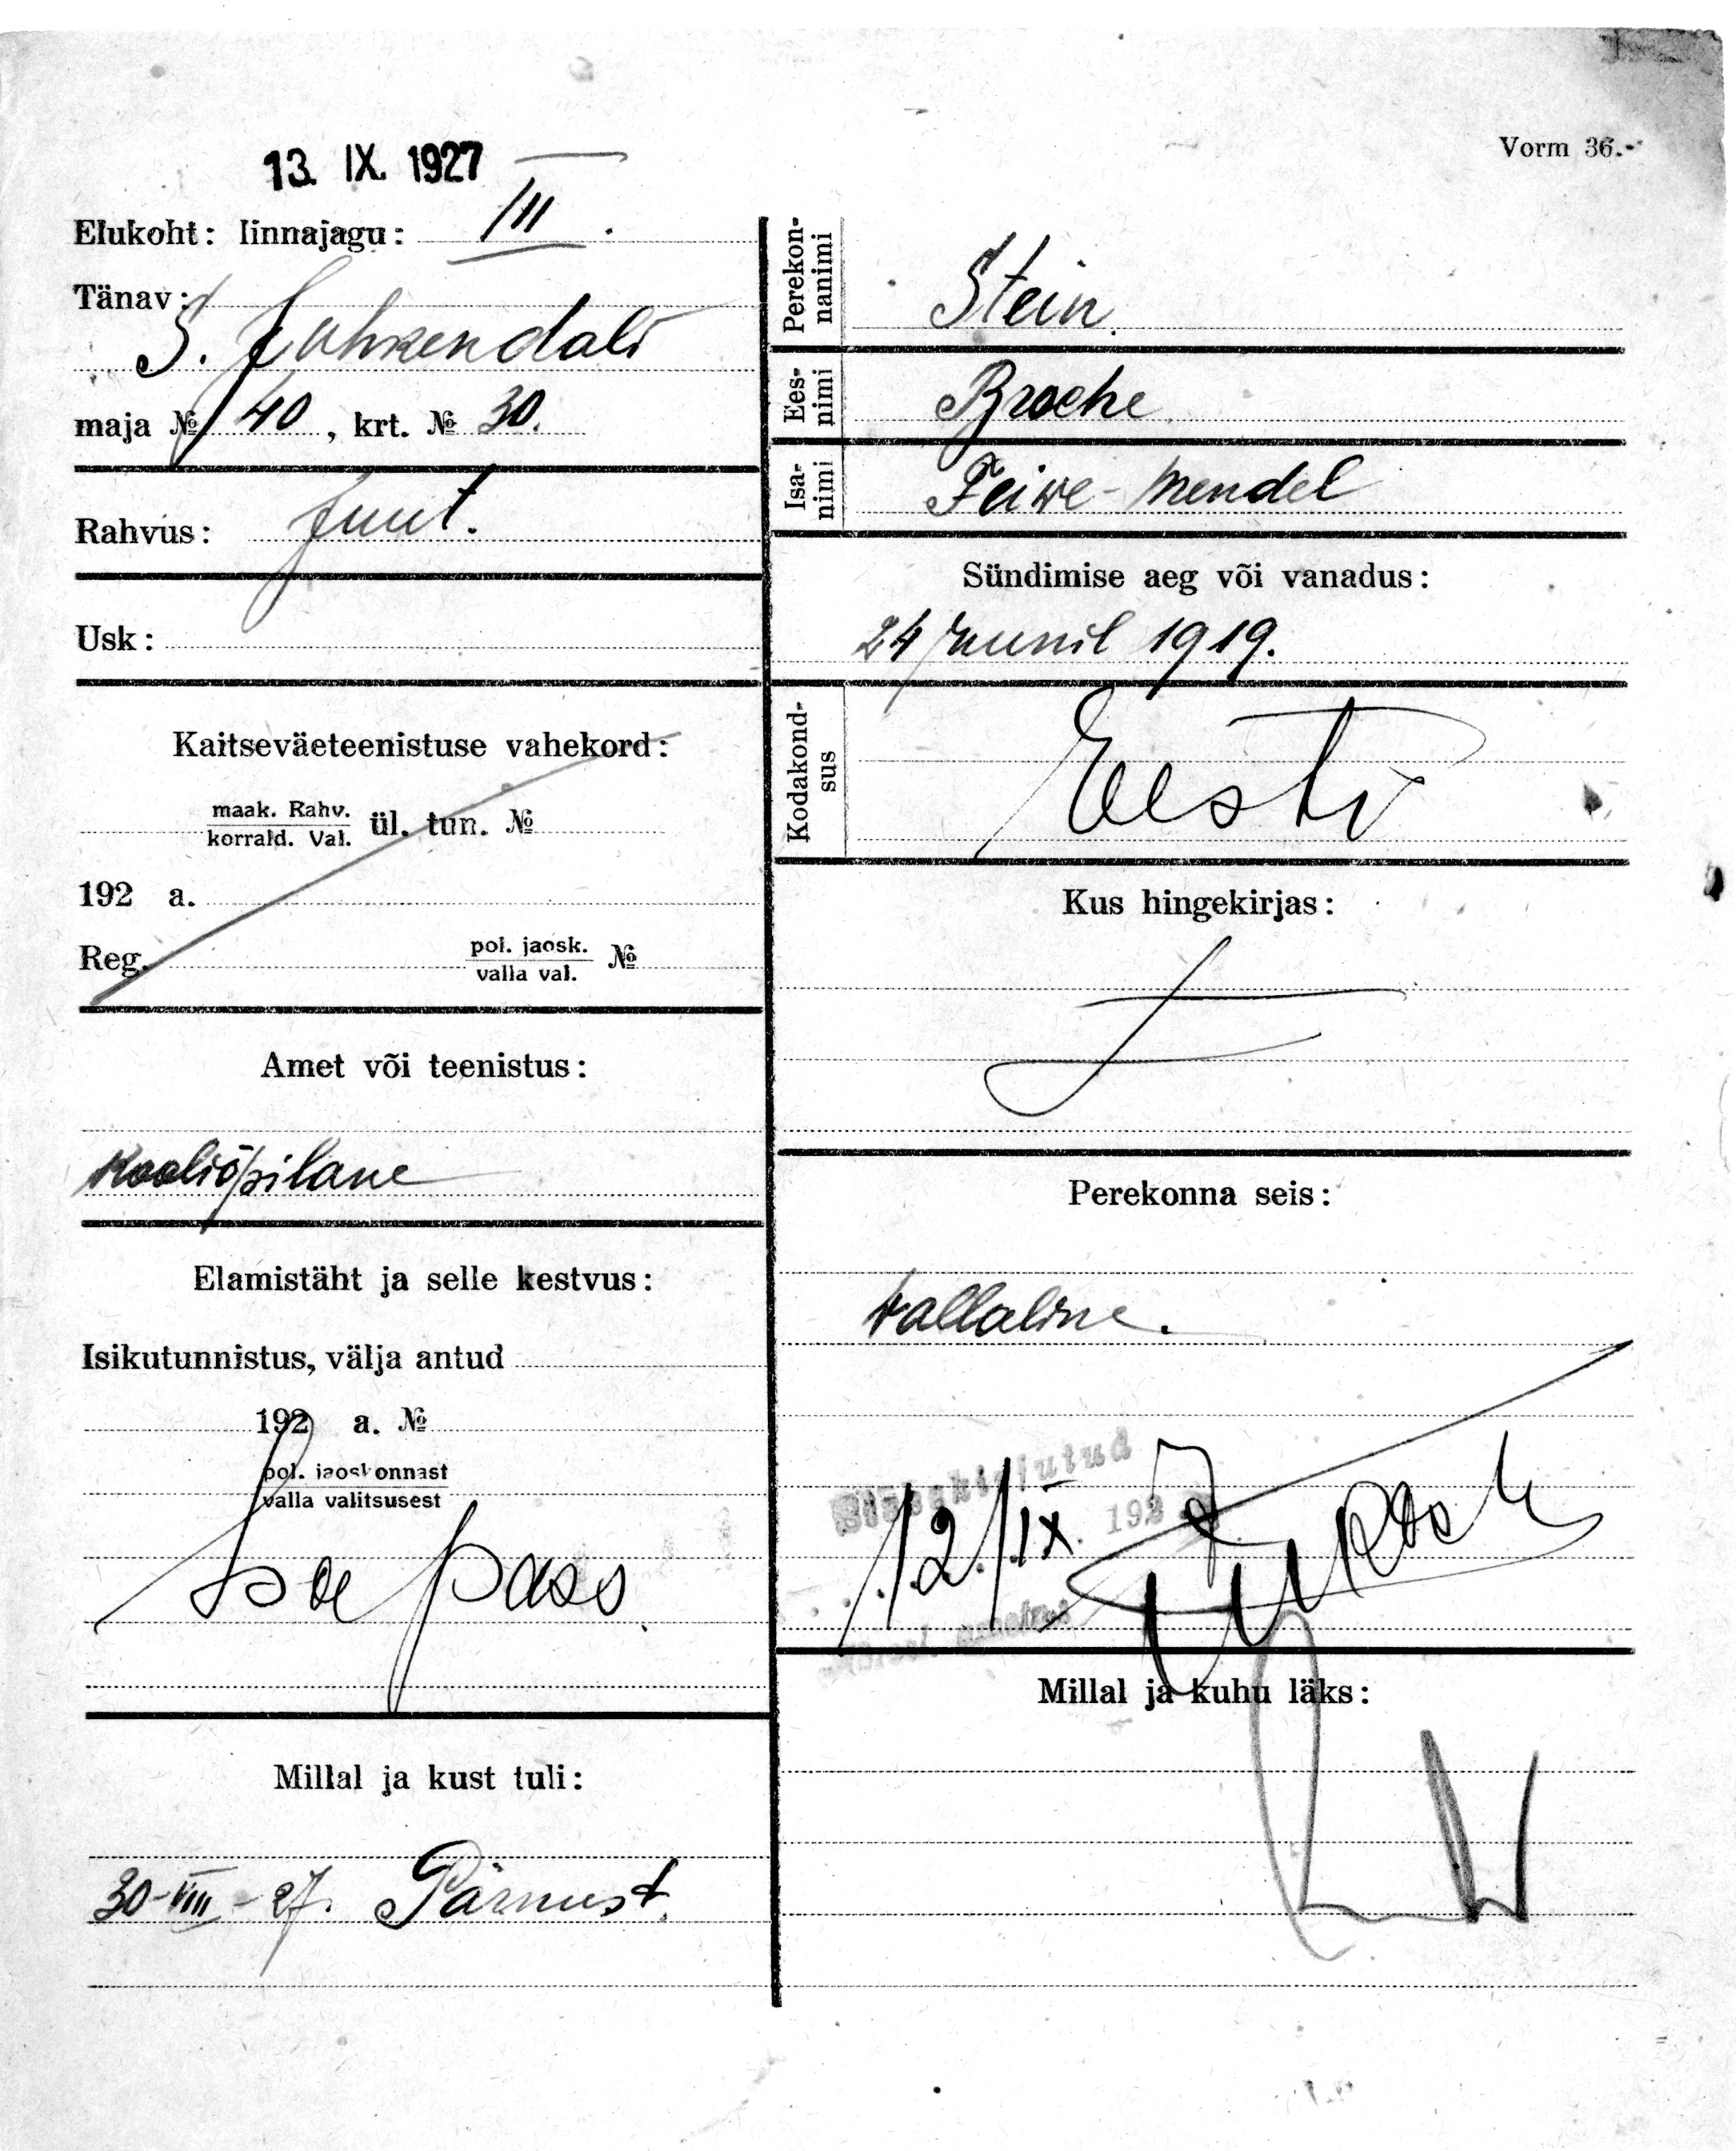 Vorm 36.
13. IX. 1927
Elukoht: linnajagu: III.
Tänav:
S. Juhkendali
maja № 40, krt. № 30.
Rahvus: Juut.
Usk:
Kaitseväeteenistuse vahekord:
maak. Rahv.
korrald. Val. ül. tun. №
192 a.
Reg. pol. jaosk.
valla val. №
Amet või teenistus:
Kooliõpilane
Elamistäht ja selle kestvus:
Isikutunnistus, välja antud
192 a. №
pol. jaoskonnast
valla valitsusest
Isa pass
Millal ja kust tuli:
30-VIII-27. Pärnust.
Perekon-
nanimi Stein
Ees-
nimi Broche
Isa-
nimi Feiwe-Mendel
Sündimise aeg või vanadus:
24 juunil 1919.
Kodakond-
sus Eesti
Kus hingekirjas:
Perekonna seis:
vallaline.
Sissekirjutud
12/IX 192
Millal ja kuhu läks: